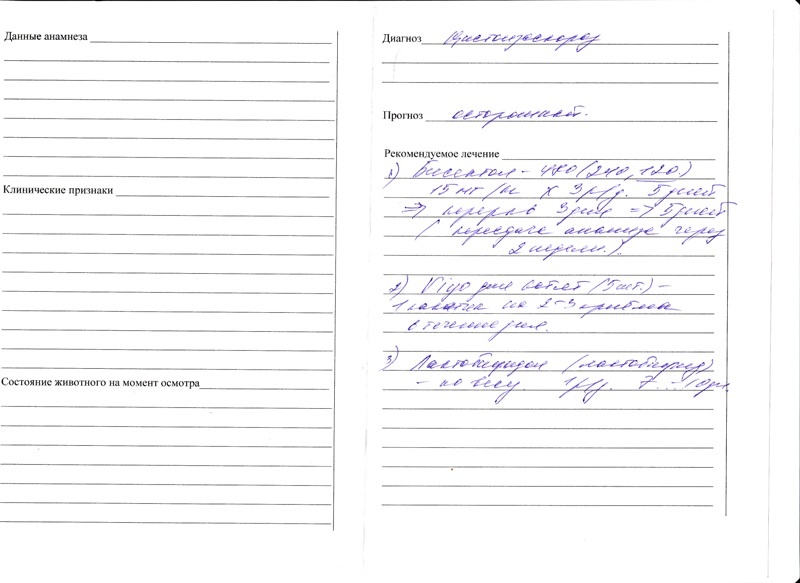 Данные анамнеза
Клинические признаки
Состояние животного на момент осмотра
Диагноз Цистоизоспороз
Прогноз осторожный.
Рекомендуемое лечение
1) Бисептол - 480 (240, 120)
15 мг/кг х 3 р/д. 5 дней
=> перерыв 3 дня => 5 дней
( пересдача анализа через
2 недели.).
2) Viyo для котят (5 шт.) –
1 пакетик на 2-3 приёма
в течение дня.
3) Лактобифадол (лактобифид)
– по весу. 1 р/д. 7 - 10 дн.